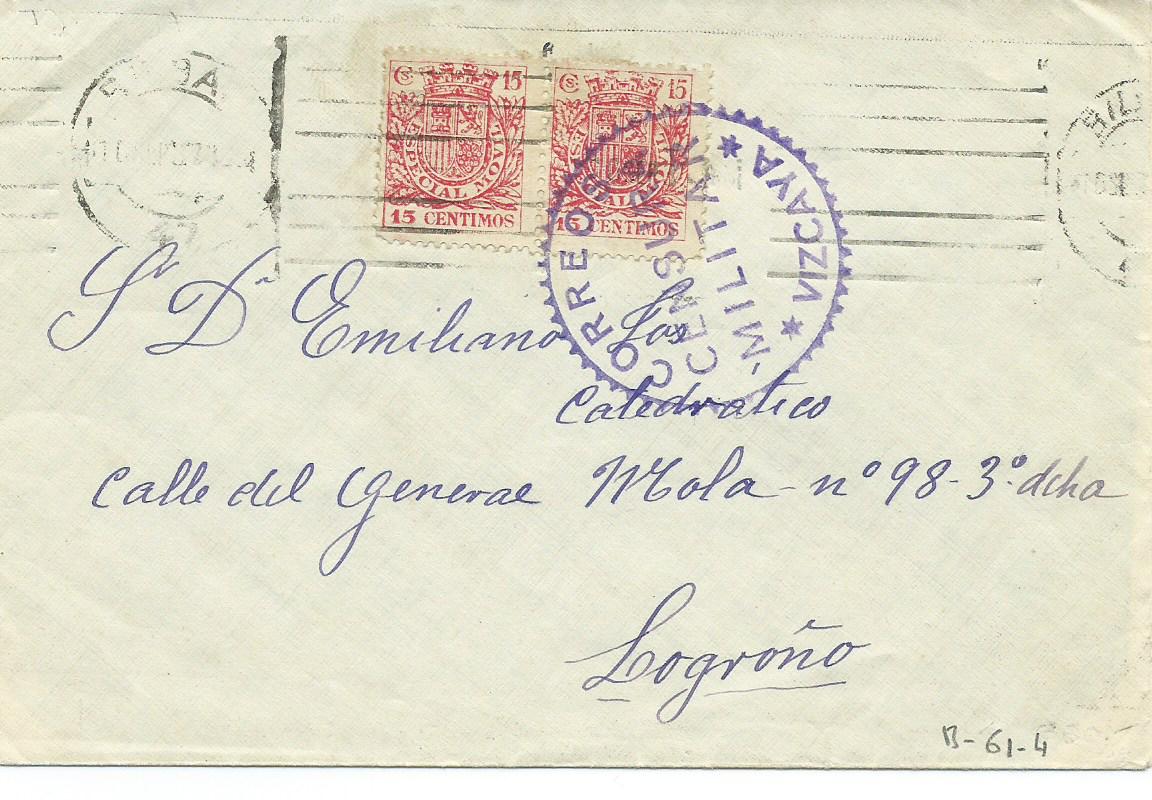 Cs 15 Cs 15
ESPECIAL MOVIL
15 CENTIMOS 15 CENTIMOS
CORREOS
CENSURA
MILITAR
VIZCAYA
Sr Dn Emiliano
Catedratico
Calle del General Mola - nº 98 - 3º dcha
Logroño
B-61-4